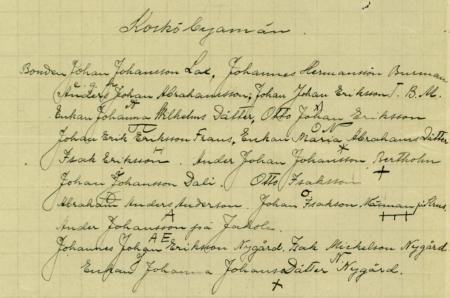 Korsö byamän.
Bonden Johan Johansson Lax, Johannes Hermansson Burman
Anders Johan Abrahamsson, Johan Johan Eriksson T. B. M.
Enkan Johanna Wilhelms Dåtter, Otto Johan Eriksson
Johan Erik Eriksson Frans, Enkan Maria Abrahams Dåtter
Isak Eriksson. Ander Johan Johansson Bertholm
Johan Johansson Dali. Otto Isaksson
Abraham Anders Anderson. Johan Isakson
Ander Johansson på Jakob.
Johannes Johan Eriksson Nygård. Isak Mickelson Nygård
Enkan Johanna Johans Dåtter Nygård.